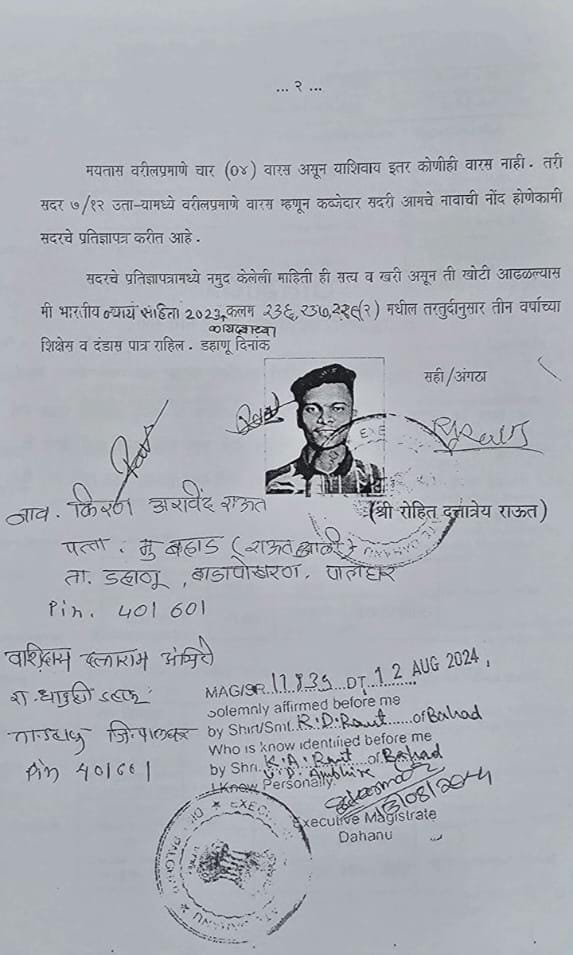 ... २ ...
मयतास वरीलप्रमाणे चार (०४) वारस असून याशिवाय इतर कोणीही वारस नाही. तरी
सदर ७/१२ उता-यामध्ये वरीलप्रमाणे वारस म्हणून कब्जेदार सदरी आमचे नावाची नोंद होणेकामी
सदरचे प्रतिज्ञापत्र करीत आहे.
सदरचे प्रतिज्ञापत्रामध्ये नमुद केलेली माहिती ही सत्य व खरी असून ती खोटी आढळल्यास
मी भारतीय न्याय संहिता 2023, कलम २३६, २३७, २२९(२) मधील तरतुदीनुसार तीन वर्षाच्या
कायद्याच्या
शिक्षेस व दंडास पात्र राहिल. डहाणू दिनांक
सही/अंगठा
(श्री रोहित दत्तात्रेय राऊत)
नाव. किरण अरविंद राऊत
पत्ता. मु बहाड (राऊत आळी)
ता. डहाणू, वाडापोखरण. पालघर
Pin. 401 601
MAG/SR 17839 DT. 12 AUG 2024,
Solemnly affirmed before me
by Shirt/Smt. R.D. Raut of Bahad
Who is know identified before me
by Shri. K.A. Raut of Bahad
I Know Personally.
13/08/2024
Executive Magistrate
Dahanu
ता डहाणु जि. पालघर
Pin 401601